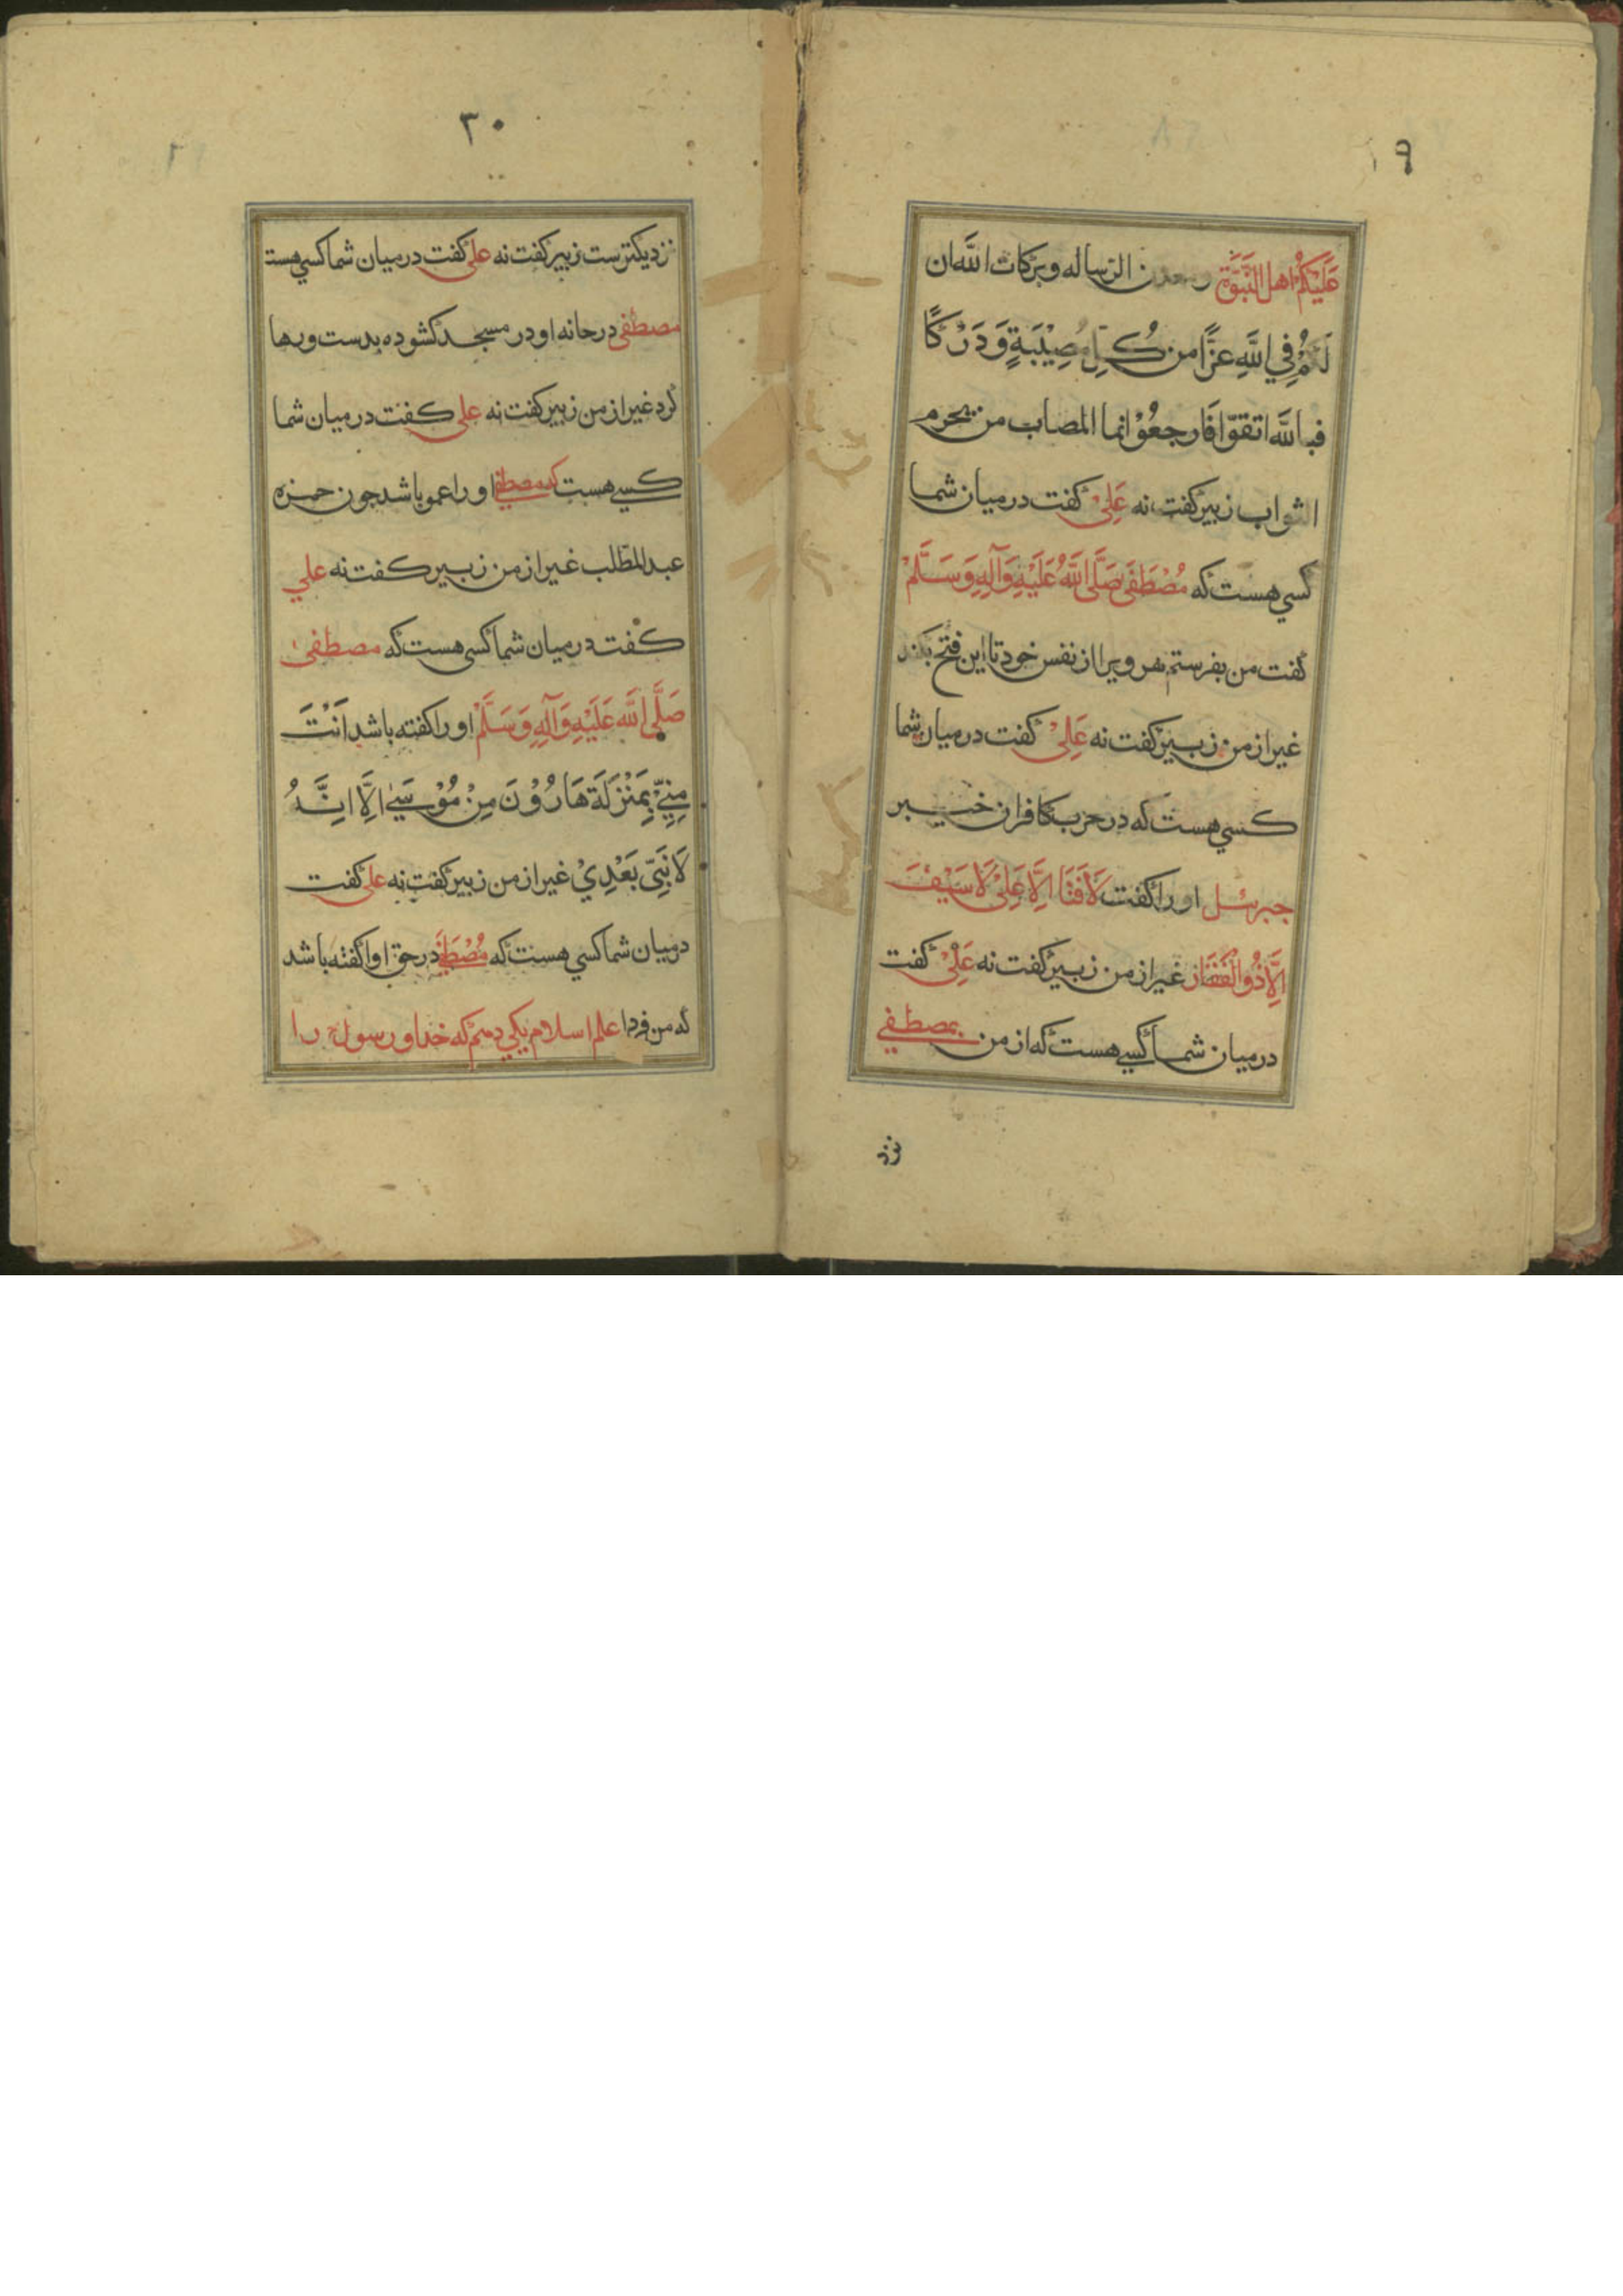 ۱۹
عَلَيْكُمْ اهل النُّبُوَّة ومعدن الرساله وبركات الله ان
لَكُمْ فِي اللَّهِ عَزًّا من كُلِّ مُصِيْبَةٍ وَدَرْكًا
فبالله اتقوا فَارجعُوْا انما المصاب من يحرم
الثواب زبير گفت نه عَلِيْ گفت در ميان شما
كسي هست كه مُصْطَفَى صَلَّى اللَّهُ عَلَيْهِ وَآلِهِ وَسَلَّمْ
گفت من بفرستم هر ويرا از نفس خود تا اين فتح بكند
غير از من زبير گفت نه عَلِيْ گفت در ميان شما
كسي هست كه در حرب كافران خيبر
جبرئيل او را گفت لَا فَتَا اِلَّا عَلِيْ لَا سَيْفَ
اِلَّا ذُو الْفَقَار غير از من زبير گفت نه عَلِيْ گفت
در ميان شما كسي هست كه از من بمصطفي
نزد
۳۰
نزديكترست زبير گفت نه علي گفت در ميان شما كسي هست
مصطفى در خانه او در مسجد گشوده بدست ورها
كرد غير از من زبير گفت نه علي گفت در ميان شما
كسي هست كه مصطفي او را عمو باشد جون حمزه
عبد المطلب غير از من زبير گفت نه علي
گفت در ميان شما كسي هست كه مصطفى
صَلَّى اللَّه عَلَيْهِ وَآلِهِ وَسَلَّمْ او را گفته باشد اَنْتَ
مِنِّيْ بِمَنْزِلَةِ هَارُوْنَ مِنْ مُوْسَيٰ اِلَّا اِنَّهُ
لَا نَبِيّ بَعْدِيْ غير از من زبير گفت نه علي گفت
در ميان شما كسي هست كه مُصْطَفَي در حق او گفته باشد
كه من فردا علم اسلام بكي دهم كه خدا و رسول را